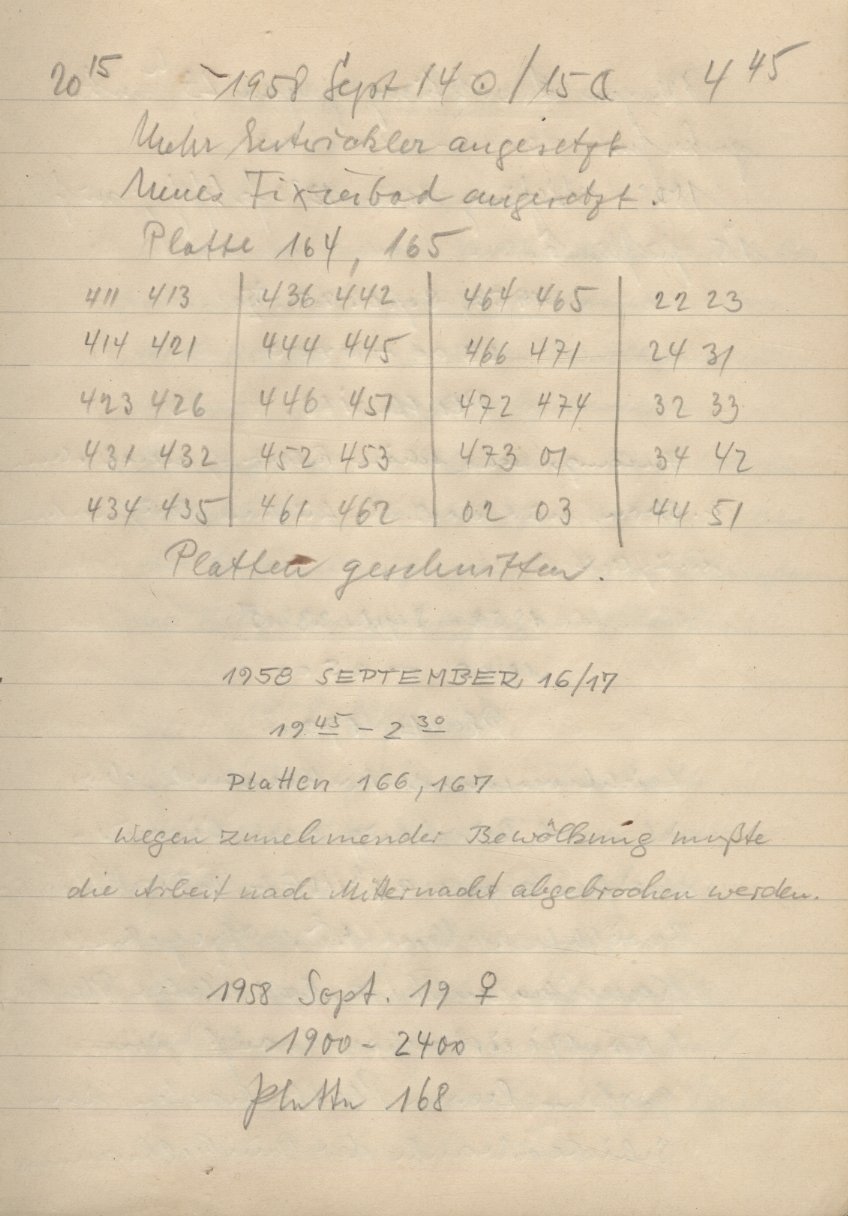 20 15 1958 Sept 14 ☉ / 15 ☾ 4 45
Mehr Entwickler angesetzt
Neues Fixierbad angesetzt.
Platte 164, 165
411 413 | 436 442 | 464 465 | 22 23
414 421 | 444 445 | 466 471 | 24 31
423 426 | 446 451 | 472 474 | 32 33
431 432 | 452 453 | 473 01 | 34 42
434 435 | 461 462 | 02 03 | 44 51
Platten geschnitten.
1958 SEPTEMBER 16/17
19 45 – 2 30
Platten 166, 167
Wegen zunehmender Bewölkung mußte
die Arbeit nach Mitternacht abgebrochen werden.
1958 Sept. 19 ♀
1900 – 2400
Platte 168